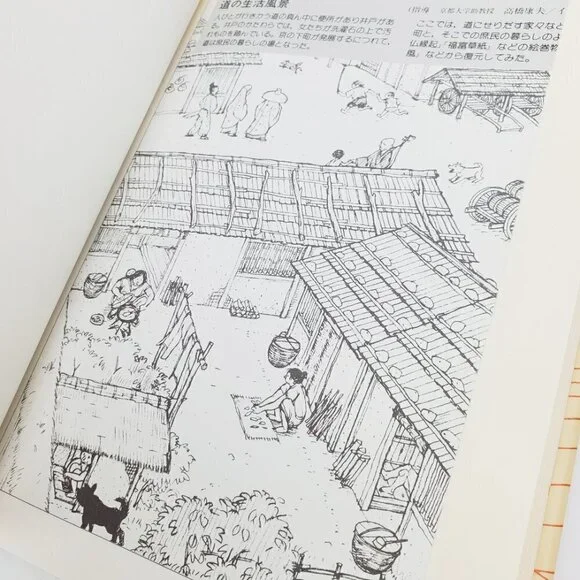 道の生活風景
人びとが行きかう道の真ん中に便所があり井戸があ
る。井戸のかたわらでは、女たちが洗濯石の上で汚
れものを踏んでいる。京の下町が発展するにつれて、
道は庶民の暮らしの場となった。
(指導 京都大学助教授 高橋康夫/イ
ここでは、道にせりだす家々など
町と、そこでの庶民の暮らしのよ
仏縁起」「福富草紙」などの絵巻物
風」などから復元してみた。